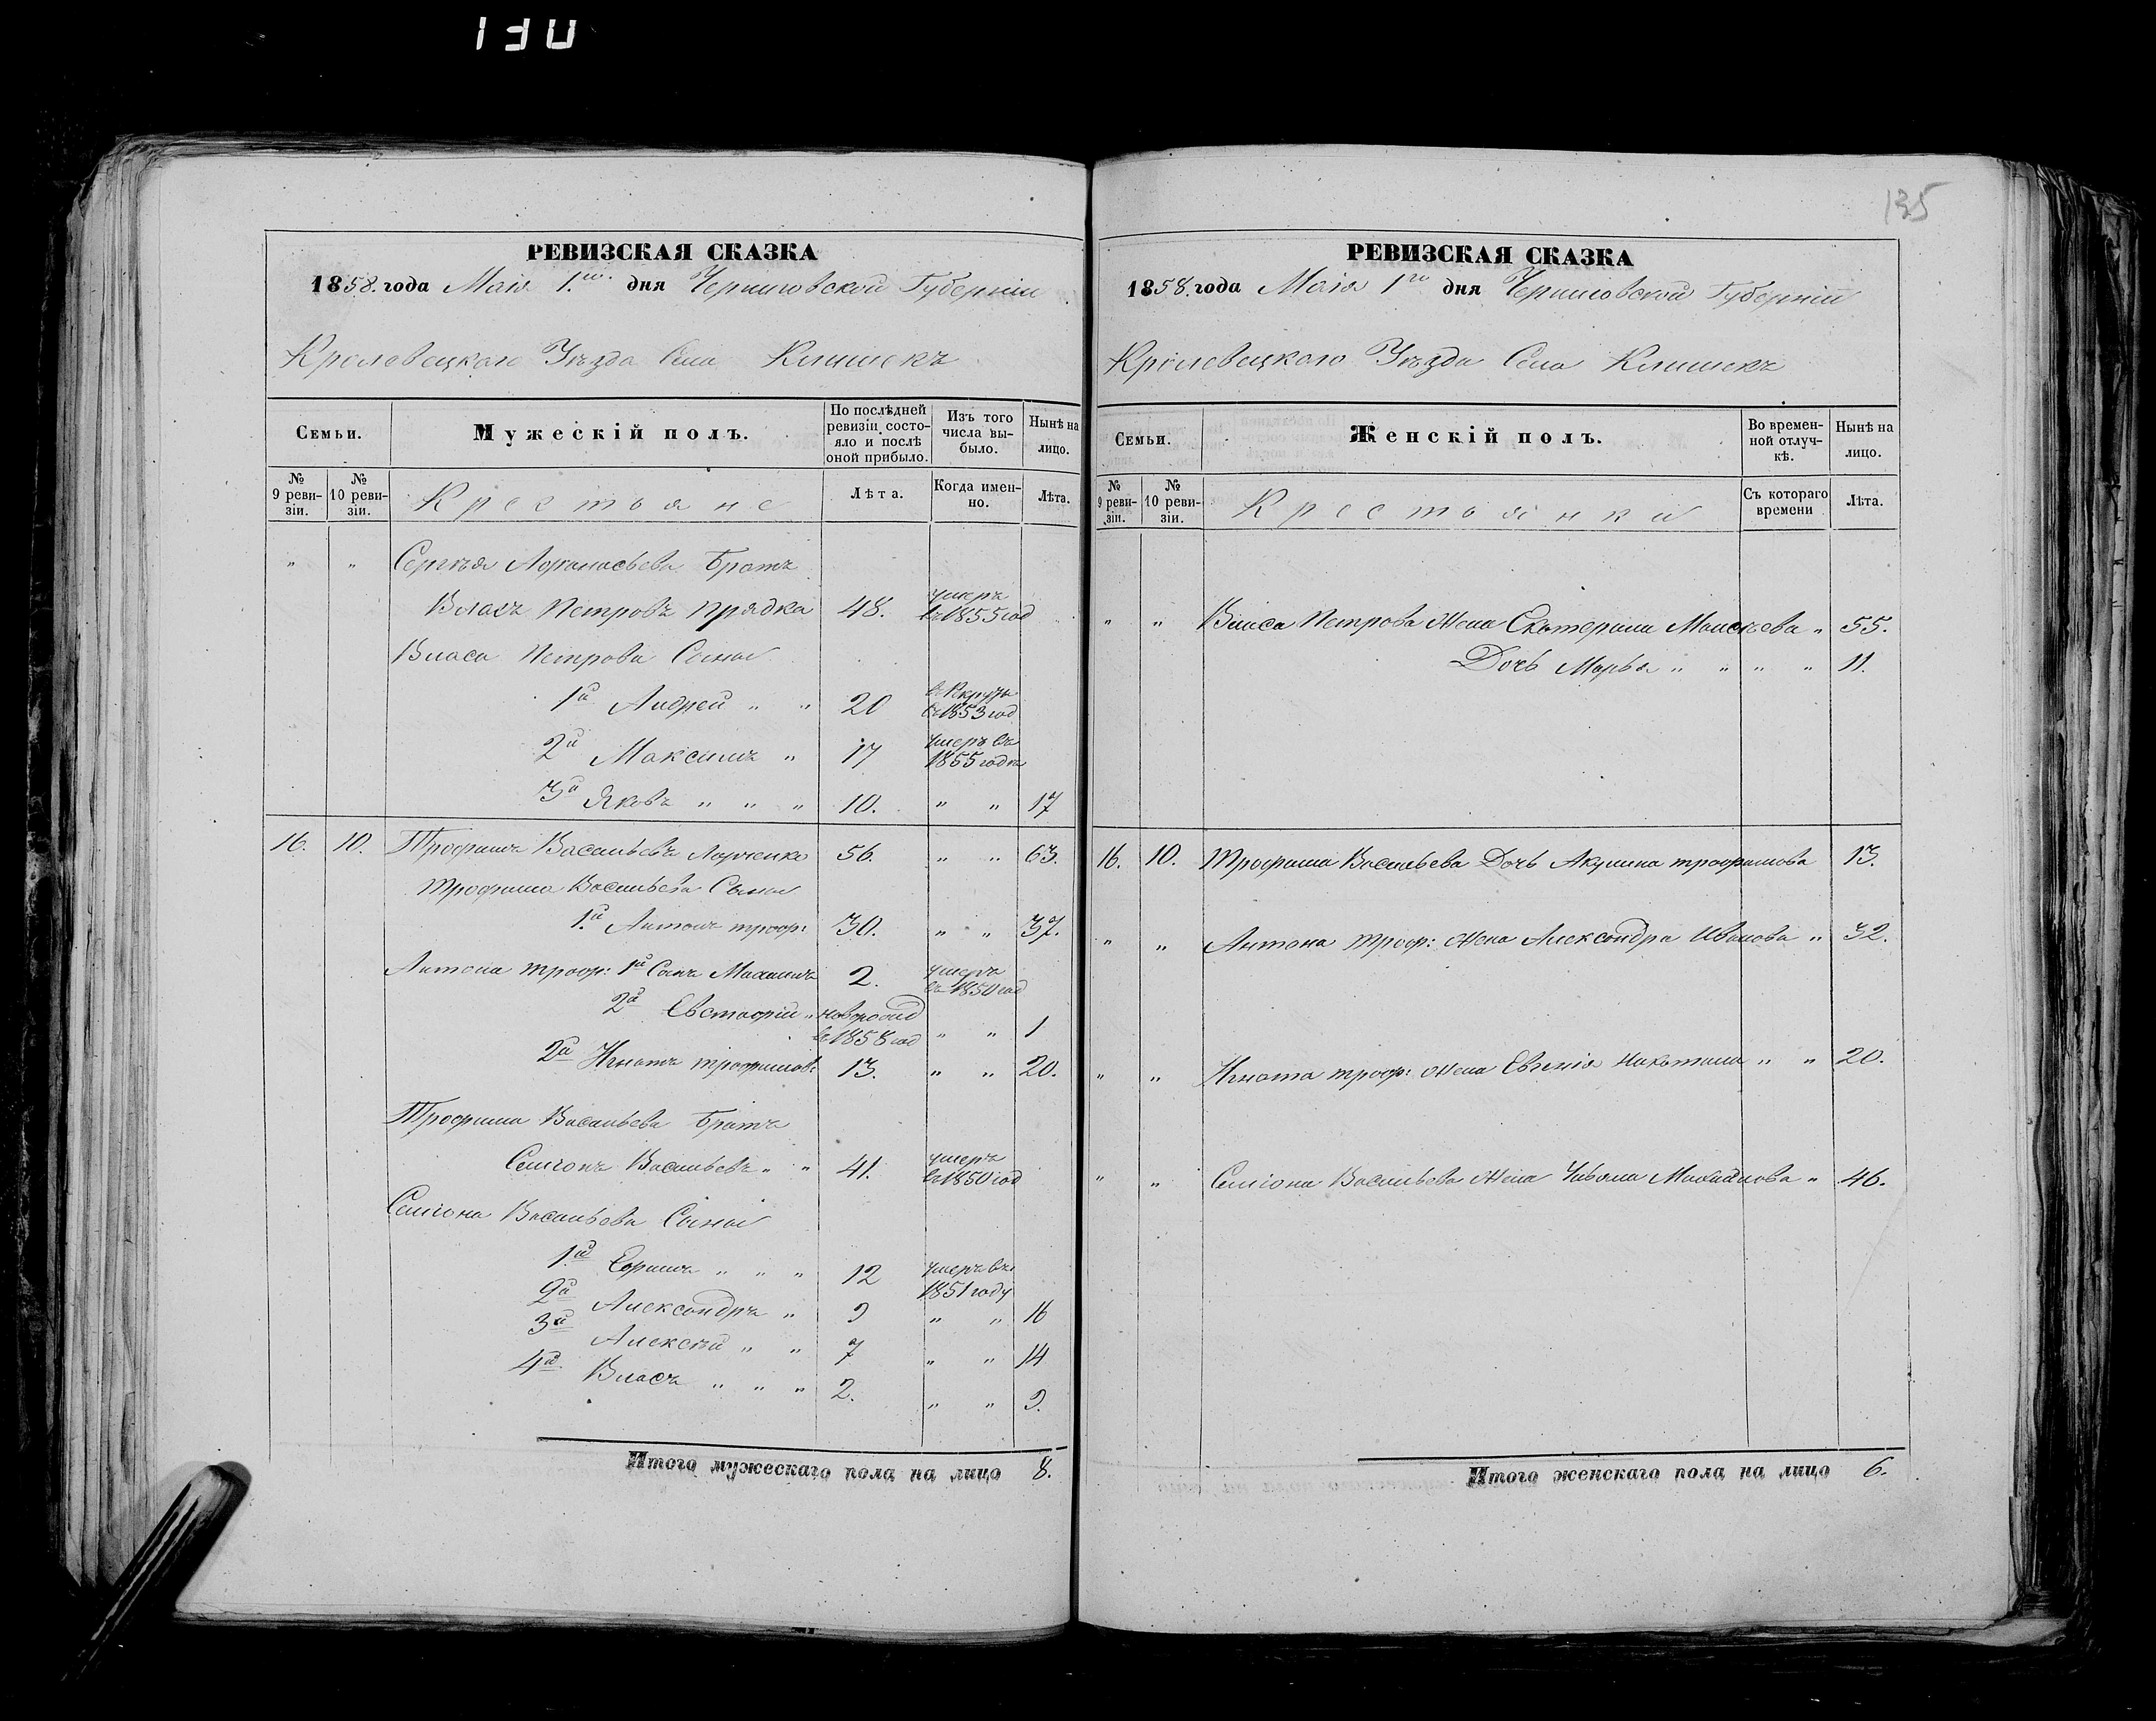 130
135
РЕВИЗСКАЯ СКАЗКА
1858. года Маія 1.го дня Черниговской Губерніи
Кролевецкаго Уѣзда Села Клишекъ
Семьи.
Мужескій полъ.
По послѣдней ревизіи состояло и послѣ оной прибыло.
Изъ того числа выбыло.
Нынѣ на лицо.
№ 9 ревизіи.
№ 10 ревизіи.
Крестьяне
Лѣта.
Когда именно.
Лѣта.
" " Сергѣя Афанасьева Братъ
Власъ Петровъ Прядка 48. умеръ въ 1855 год
Власа Петрова Сыны
1й Андрей " " 20 в Рекруты въ 1853 год
2й Максимъ " 17 умеръ въ 1855 годѣ
3й Яковъ " " " 10. " " 17
16. 10. Трофимъ Васильевъ 56. " " 63.
Трофима Васильева Сыны
1.й Антонъ Троф: 30. " " 37.
Антона Троф: 1й Сынъ 2. умеръ въ 1850 год
2й Евстафій " новорожд въ 1858 год " " 1
2й Игнатъ Трофимов: 13. " " 20.
Трофима Васильева Братъ
Семіонъ Васильевъ " " 41. умеръ въ 1850 год
Семіона Васильева Сыны
1.й " " " 12 умеръ въ 1851 году
2й Александръ " 9 " " 16
3й Алексѣй " " 7 " " 14
4й Власъ " " " 2. " " 9.
Итого мужескаго пола на лицо 8.
РЕВИЗСКАЯ СКАЗКА
1858. года Маія 1го дня Черниговской Губерніи
Кролевецкаго Уѣзда Села Клишекъ
Семьи.
Женскій полъ.
Во временной отлучкѣ.
Нынѣ на лицо.
№ 9 ревизіи.
№ 10 ревизіи.
Крестьянки
Съ котораго времени
Лѣта.
" " Власа Петрова Жена Екатерина Моисѣева " 55.
Дочь Марья " " " " 11.
16. 10. Трофима Васильева Дочь Акулина Трофимова 13.
" " Антона Троф: Жена Александра Иванова " 32.
" " Игната Троф: Жена Евгенія " " 20.
" " Семіона Васильева Жена Михайлова " 46.
Итого женскаго пола на лицо 6.